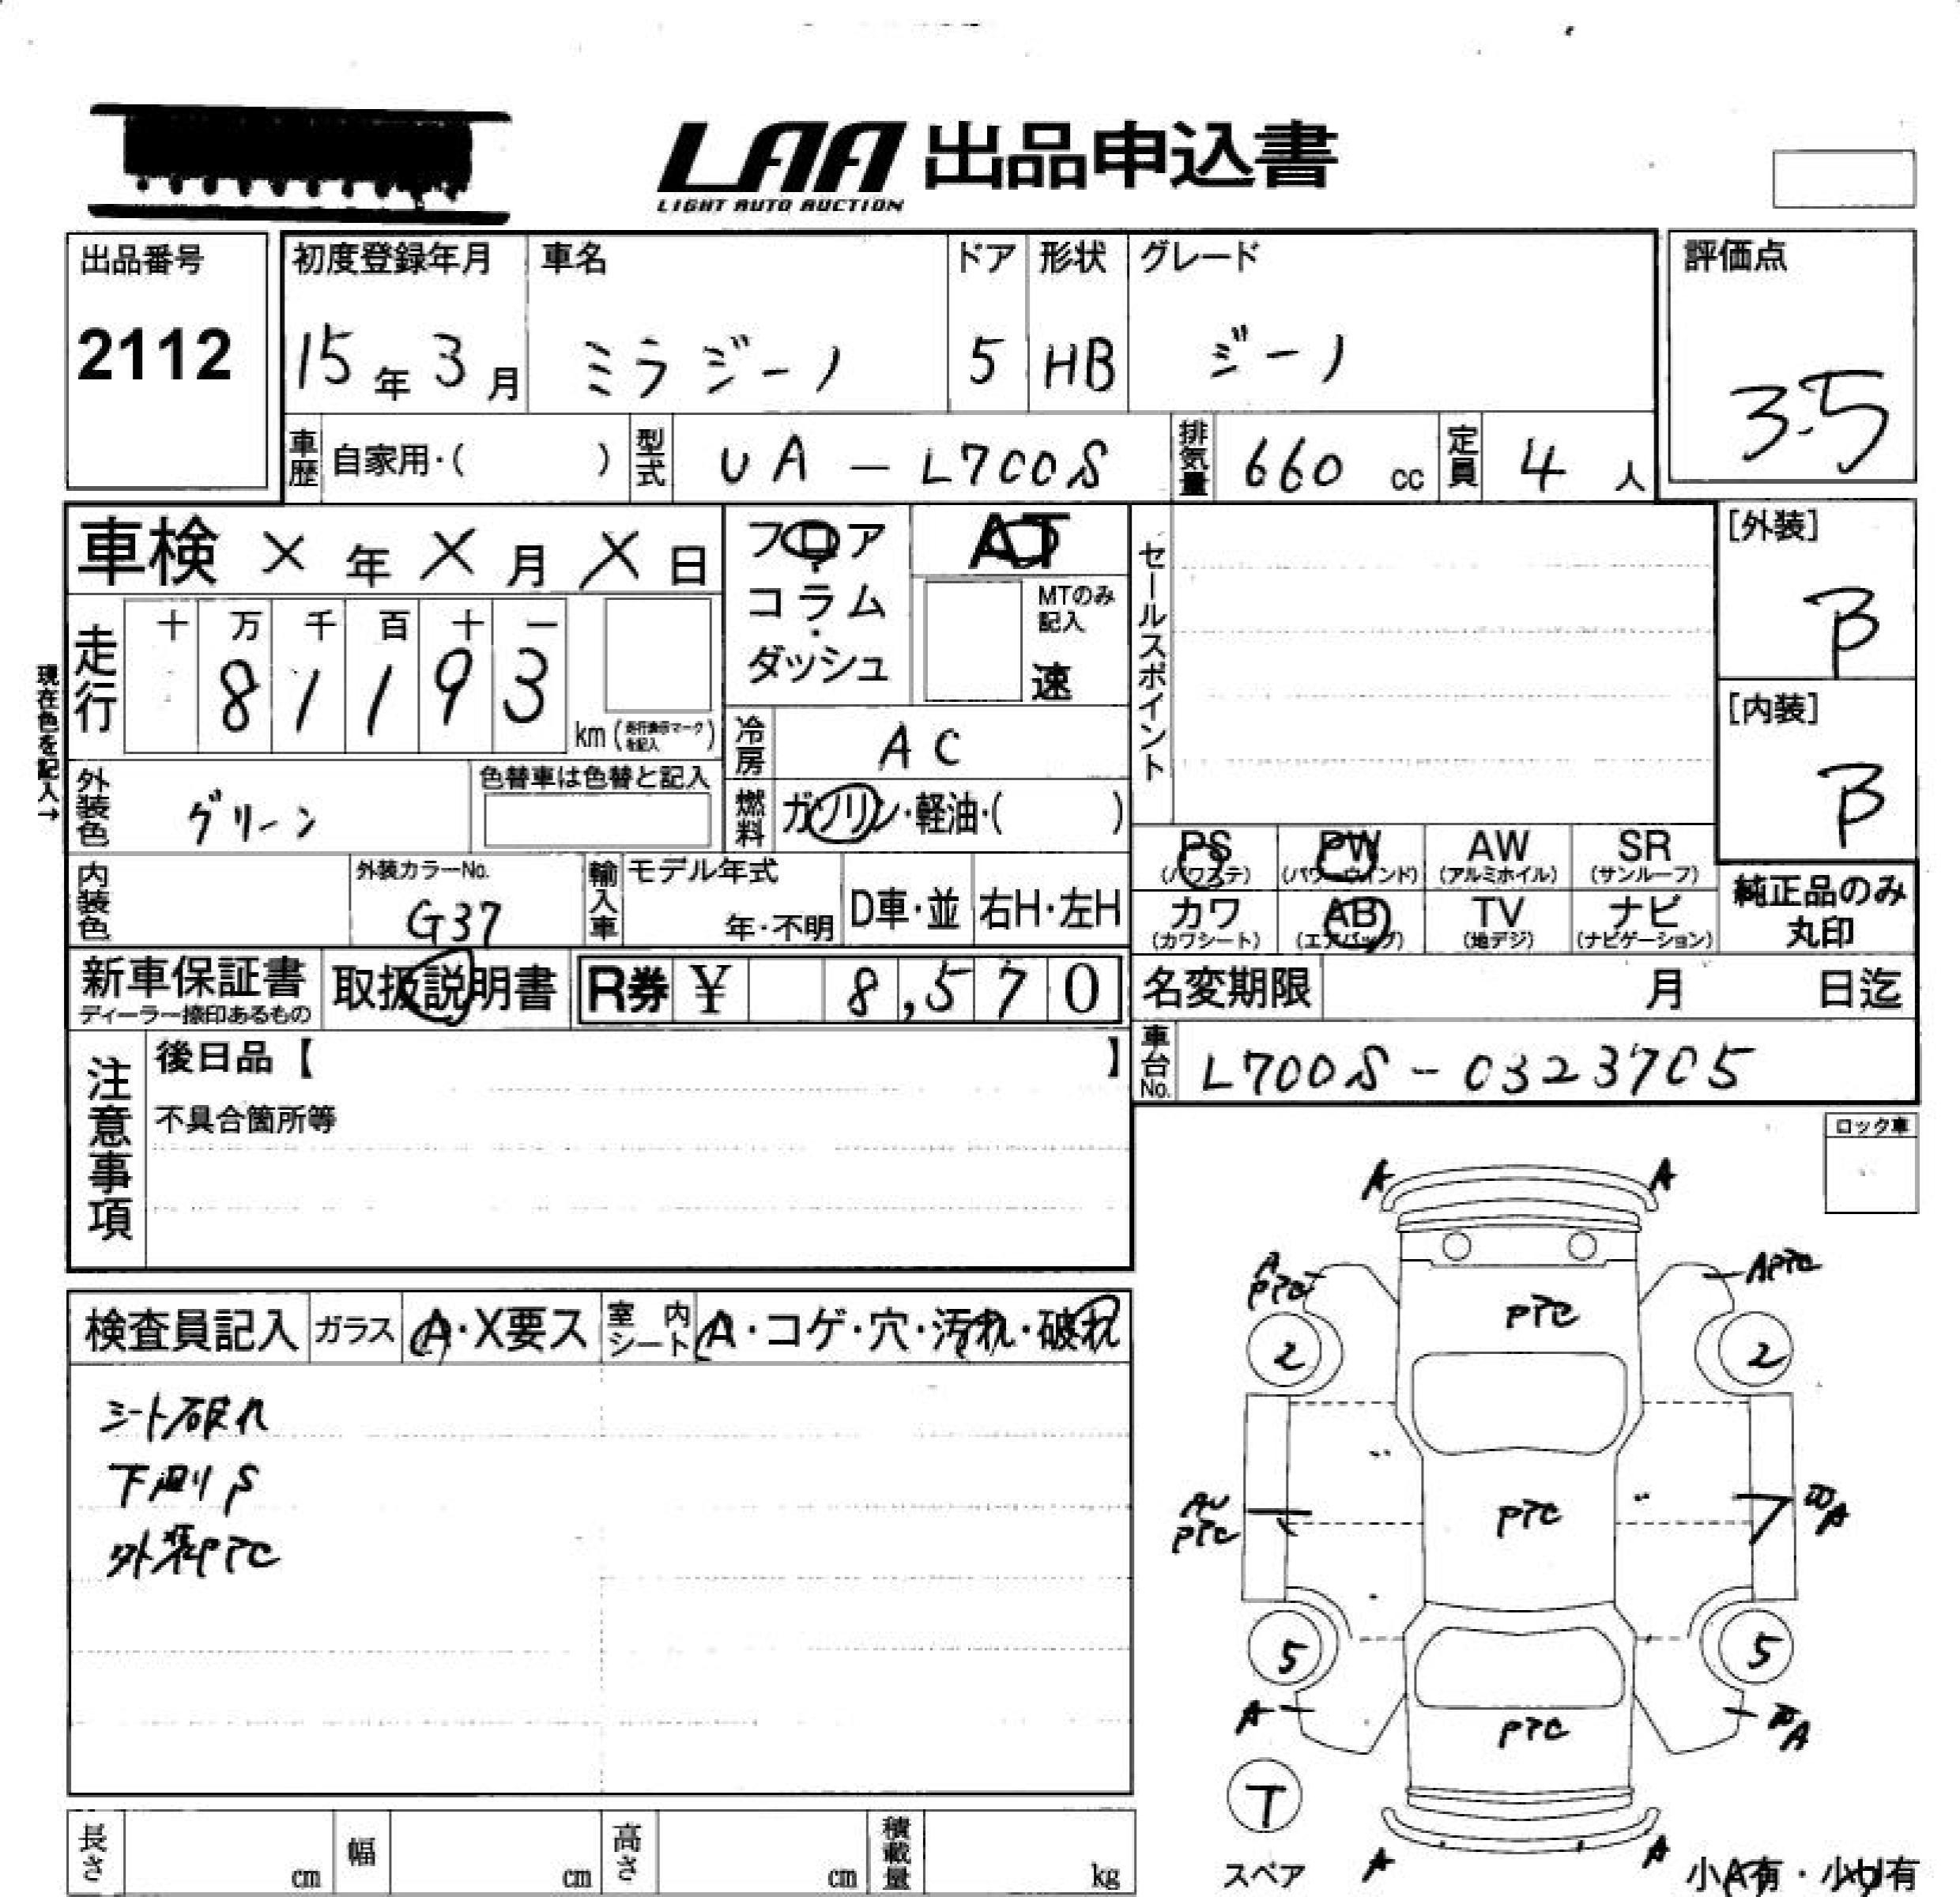 LAA 出品申込書
LIGHT AUTO AUCTION
出品番号
2112
初度登録年月
15年3月
車名
ミラジーノ
ドア
5
形状
HB
グレード
ジーノ
評価点
3.5
車歴 自家用・( )
型式 UA-L700S
排気量 660 cc
定員 4 人
車検 X年X月X日
フロア・コラム・ダッシュ
AT
MTのみ記入
速
セールスポイント
[外装]
B
[内装]
B
現在色を記入→
走行 十 万 千 百 十 一
8 1 1 9 3
km(走行表示マークを記入)
冷房 AC
外装色 グリーン
色替車は色替と記入
燃料 ガソリン・軽油・( )
PS (パワステ)
PW (パワーウインド)
AW (アルミホイル)
SR (サンルーフ)
カワ (カワシート)
AB (エアバッグ)
TV (地デジ)
ナビ (ナビゲーション)
純正品のみ丸印
内装色
外装カラーNo.
G37
輸入車 モデル年式
年・不明
D車・並
右H・左H
新車保証書
ディーラー捺印あるもの
取扱説明書
R券 ¥ 8,570
名変期限 月 日迄
車台No. L700S-0323705
注意事項
後日品【 】
不具合箇所等
ロック車
検査員記入
ガラス A・X要ス
室内シート A・コゲ・穴・汚れ・破れ
シート破れ
下廻りS
外装PTC
A A
A PTC
APTC
PTC
2 2
AU PTC
PTC
A
5 5
A
A
PTC
T
スペア
A A
小A有・小U有
長さ cm
幅 cm
高さ cm
積載量 kg